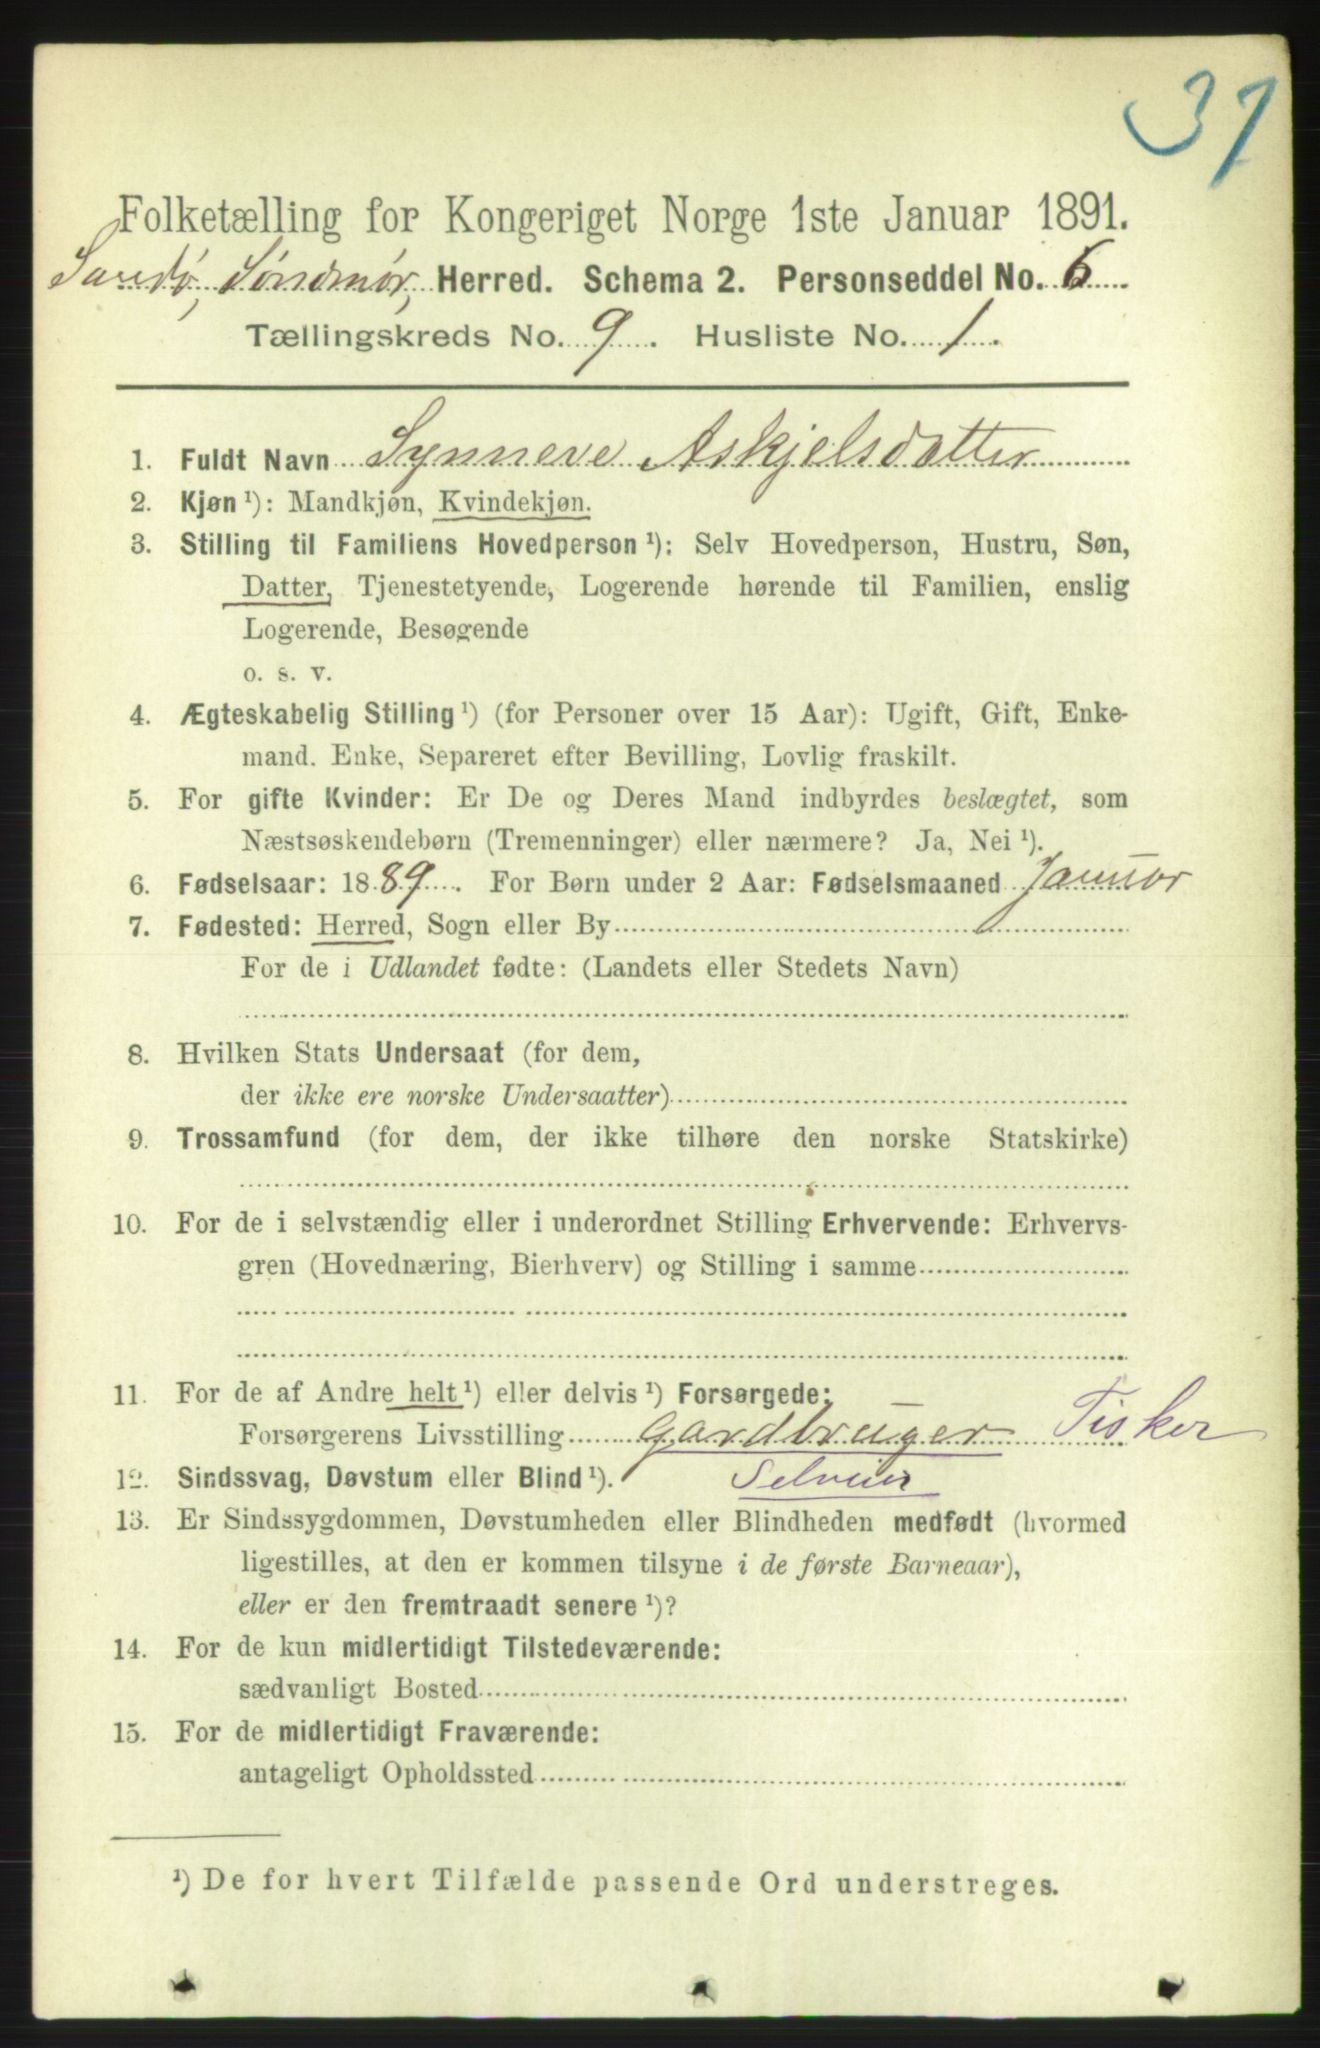 37
Folketælling for Kongeriget Norge 1ste Januar 1891.
Sandø, Søndmør, Herred. Schema 2. Personseddel No. 6
Tællingskreds No. 9. Husliste No. 1.
1. Fuldt Navn Synneve Askjelsdatter
2. Kjøn ¹): Mandkjøn, Kvindekjøn.
3. Stilling til Familiens Hovedperson ¹): Selv Hovedperson, Hustru, Søn,
Datter, Tjenestetyende, Logerende hørende til Familien, enslig
Logerende, Besøgende
o. s. v.
4. Ægteskabelig Stilling ¹) (for Personer over 15 Aar): Ugift, Gift, Enke-
mand. Enke, Separeret efter Bevilling, Lovlig fraskilt.
5. For gifte Kvinder: Er De og Deres Mand indbyrdes beslægtet, som
Næstsøskendebørn (Tremenninger) eller nærmere? Ja, Nei ¹).
6. Fødselsaar: 1889. For Børn under 2 Aar: Fødselsmaaned Januar
7. Fødested: Herred, Sogn eller By
For de i Udlandet fødte: (Landets eller Stedets Navn)
8. Hvilken Stats Undersaat (for dem,
der ikke ere norske Undersaatter)
9. Trossamfund (for dem, der ikke tilhøre den norske Statskirke)
10. For de i selvstændig eller i underordnet Stilling Erhvervende: Erhvervs-
gren (Hovednæring, Bierhverv) og Stilling i samme
11. For de af Andre helt ¹) eller delvis ¹) Forsørgede:
Forsørgerens Livsstilling Gardbruger Fisker
12. Sindssvag, Døvstum eller Blind ¹). Selveier
13. Er Sindssygdommen, Døvstumheden eller Blindheden medfødt (hvormed
ligestilles, at den er kommen tilsyne i de første Barneaar),
eller er den fremtraadt senere ¹)?
14. For de kun midlertidigt Tilstedeværende:
sædvanligt Bosted
15. For de midlertidigt Fraværende:
antageligt Opholdssted
¹) De for hvert Tilfælde passende Ord understreges.